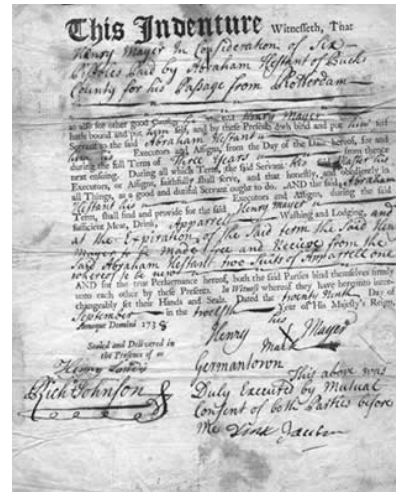 This Indenture Witnesseth, That
Henry Mayer In Consideration of Six
Pistoles Paid by Abraham Hestant of Bucks
County for his Passage from Rotterdam
as also for other good Causes he the said Henry Mayer
hath bound and put himself, and by these Presents doth bind and put himself
Servant to the said Abraham Hestant
his Executors and Assigns, from the Day of the Date hereof, for and
during the full Term of Three Years from thence
next ensuing. During all which Term, the said Servant his said Master his
Executors, or Assigns, faithfully shall serve, and that honestly, and obediently in
all Things, as a good and dutiful Servant ought to do. AND the said Abraham
Hestant his Executors and Assigns, during the said
Term, shall find and provide for the said Henry Mayer
sufficient Meat, Drink, Apparell Washing and Lodging, and
at the Expiration of the said term the said Hen
Mayer to be made free and Recieve from the
Said Abraham Hestant two Suits of Apparell one
whereof to be new
AND for the true Performance hereof, both the said Parties bind themselves firmly
unto each other by these Presents. In Witness whereof they have hereunto inter-
changeably set their Hands and Seals. Dated the twenty Ninth Day of
September in the twelfth Year of His Majesty's Reign,
Annoque Domini 1738
his
Henry X Mayer
mark
Sealed and Delivered in
the Presence of us
Henry
Johnson
Germantown
This above was
Duly Executed by Mutual
Consent of both Parties before
Me